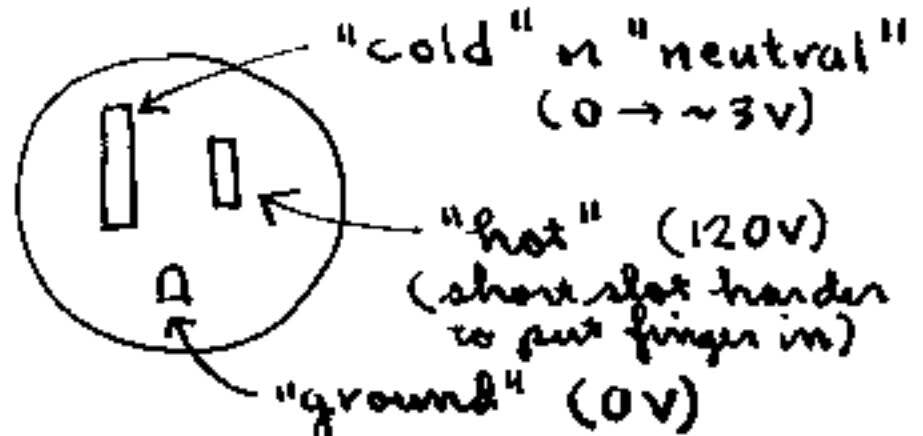 "cold" or "neutral"
(0 → ~3V)
"hot" (120V)
(short slot harder
to put finger in)
"ground" (0V)